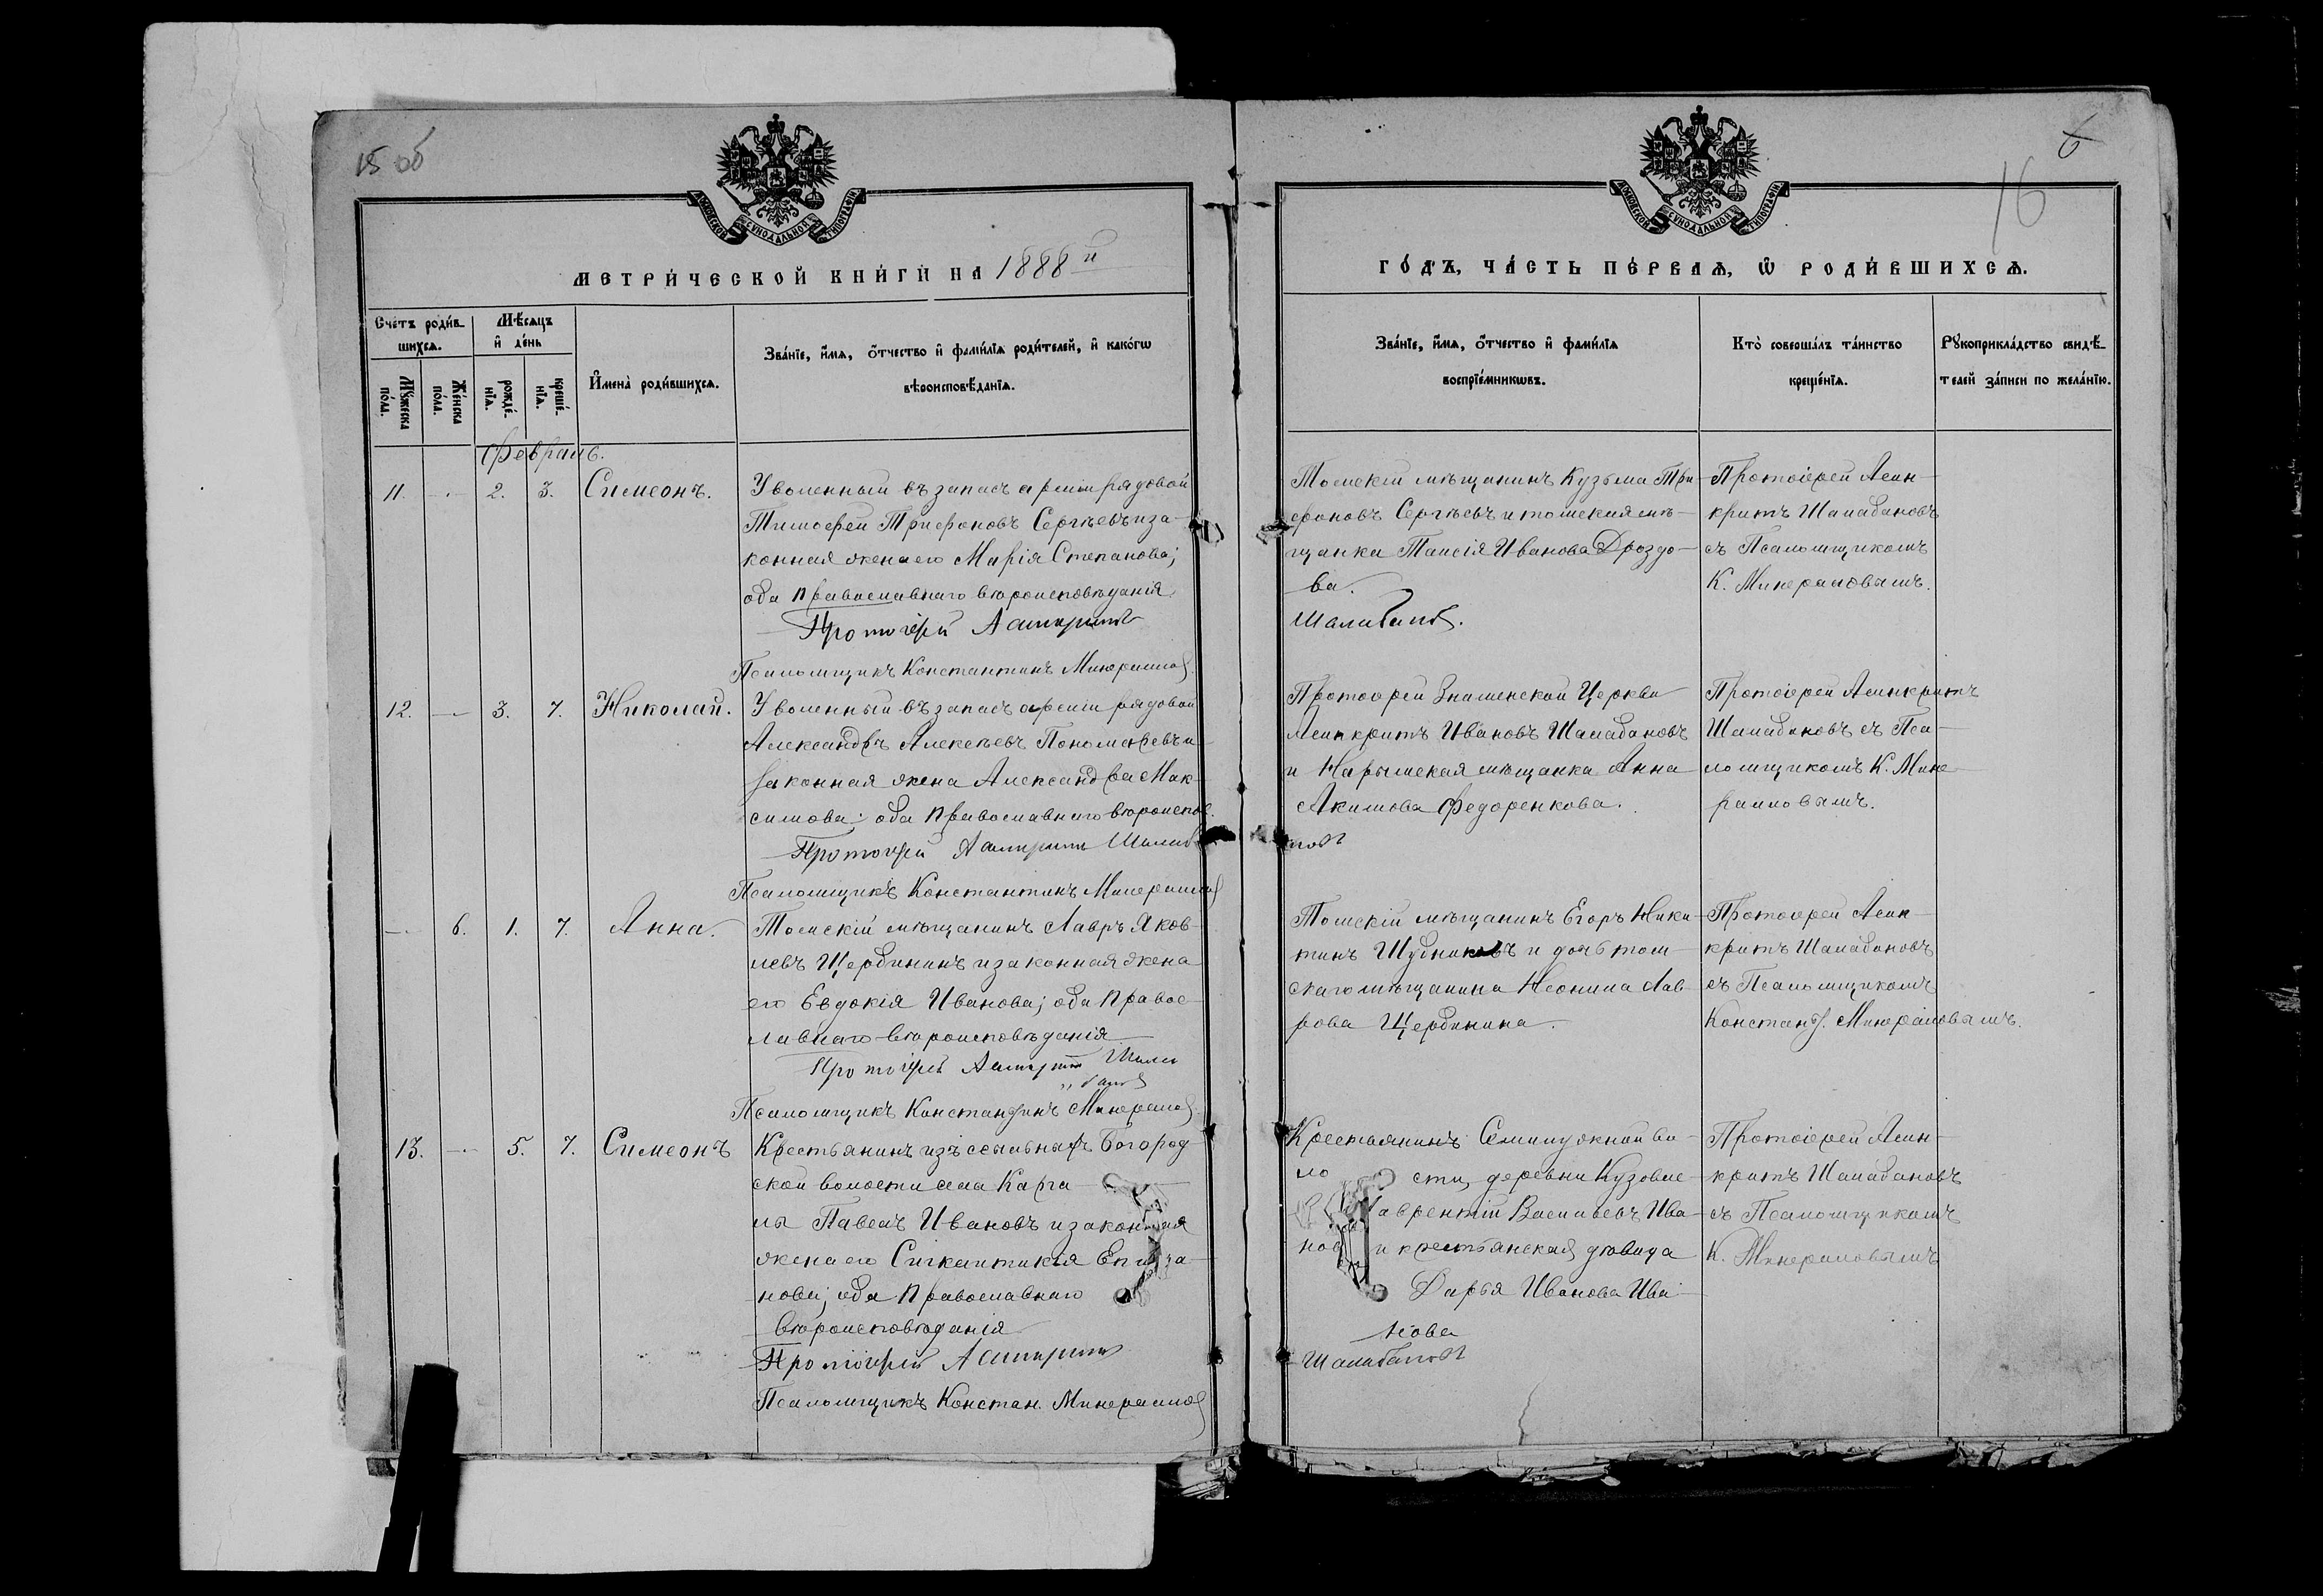 15 об
МОСКОВСКОЙ СѴНОДАЛЬНОЙ ТИПОГРАФІИ
МЕТРИ́ЧЕСКОЙ КНИ́ГИ НА 1888й
Сче́тъ роди́в-
шихся.
Мѣ́сяцъ
и де́нь
Мꙋ́жеска
по́ла.
Же́нска
по́ла.
рожде́-
нїѧ.
креще́-
нїѧ.
Имена̀ роди́вшихсѧ.
Зва́нїе, и́мѧ, ѻ́тчество и фами́лїѧ роди́телей, и како́гѡ
вѣроисповѣ́данїѧ.
Февраль.
11. — 2. 3. Симеонъ.
Уволенный въ запасъ арміи рядовой
Тимофей Трифоновъ Сергѣевъ и за-
конная жена его Марія Степанова;
оба православнаго вѣроисповѣданія.
Протоіерей Асинкритъ
Псаломщикъ Константинъ Минералловъ
12. — 3. 7. Николай.
Уволенный въ запасъ арміи рядовой
Александръ Алексѣевъ Пономаревъ и
законная жена Александра Мак-
симова; оба православнаго вѣроиспов.
Протоіерей Асинкритъ Шалаб
Псаломщикъ Константинъ Минералловъ
— 6. 1. 7. Анна.
Томскій мѣщанинъ Лавръ Яков-
левъ Щербининъ и законная жена
его Евдокія Иванова; оба право-
славнаго вѣроисповѣданія
Протоіерей Асинкритъ Шала
бановъ
Псаломщикъ Константинъ Минералловъ
13. — 5. 7. Симеонъ
Крестьянинъ изъ ссыльныхъ Богород-
ской волости села Карга-
лы Павелъ Ивановъ и законная
жена его Сигклитикія
нова; оба православнаго
вѣроисповѣданія
Протоіерей Асинкритъ
Псаломщикъ Констан. Минералловъ
6
16
МОСКОВСКОЙ СѴНОДАЛЬНОЙ ТИПОГРАФІИ
ГО́ДЪ, ЧА́СТЬ ПЕ́РВАѦ, Ѡ РОДИ́ВШИХСѦ.
Зва́нїе, и́мѧ, ѻ́тчество и фами́лїѧ
воспрїе́мникѡвъ.
Кто̀ соверша́лъ та́инство
креще́нїѧ.
Рꙋкоприкла́дство свидѣ́-
телей за́писи по жела́нїю.
Томскій мѣщанинъ Кузьма Три-
фоновъ Сергѣевъ и томская мѣ-
щанка Таисія Иванова Дроздо-
ва.
Шалабановъ.
Протоіерей Асин-
критъ Шалабановъ
съ Псаломщикомъ
К. Минералловымъ.
Протоіерей Знаменской Церкви
Асинкритъ Ивановъ Шалабановъ
и Нарымская мѣщанка Анна
Акимова Федоренкова.
ановъ
Протоіерей Асинкритъ
Шалабановъ съ Пса-
ломщикомъ К. Мине-
ралловымъ.
Томскій мѣщанинъ Егоръ Ники-
тинъ Шубниковъ и дочь том-
скаго мѣщанина Неонила Лав-
рова Щербинина.
Протоіерей Асин-
критъ Шалабановъ
съ Псаломщикомъ
Констант. Минералловымъ.
Крестьянинъ Семилужной во-
ло сти, деревни
Лаврентій Васильевъ Ива-
новъ и крестьянская дѣвица
Дарья Иванова Ива-
нова
Шалабановъ
Протоіерей Асин-
критъ Шалабановъ
съ Псаломщикомъ
К. Минералловымъ